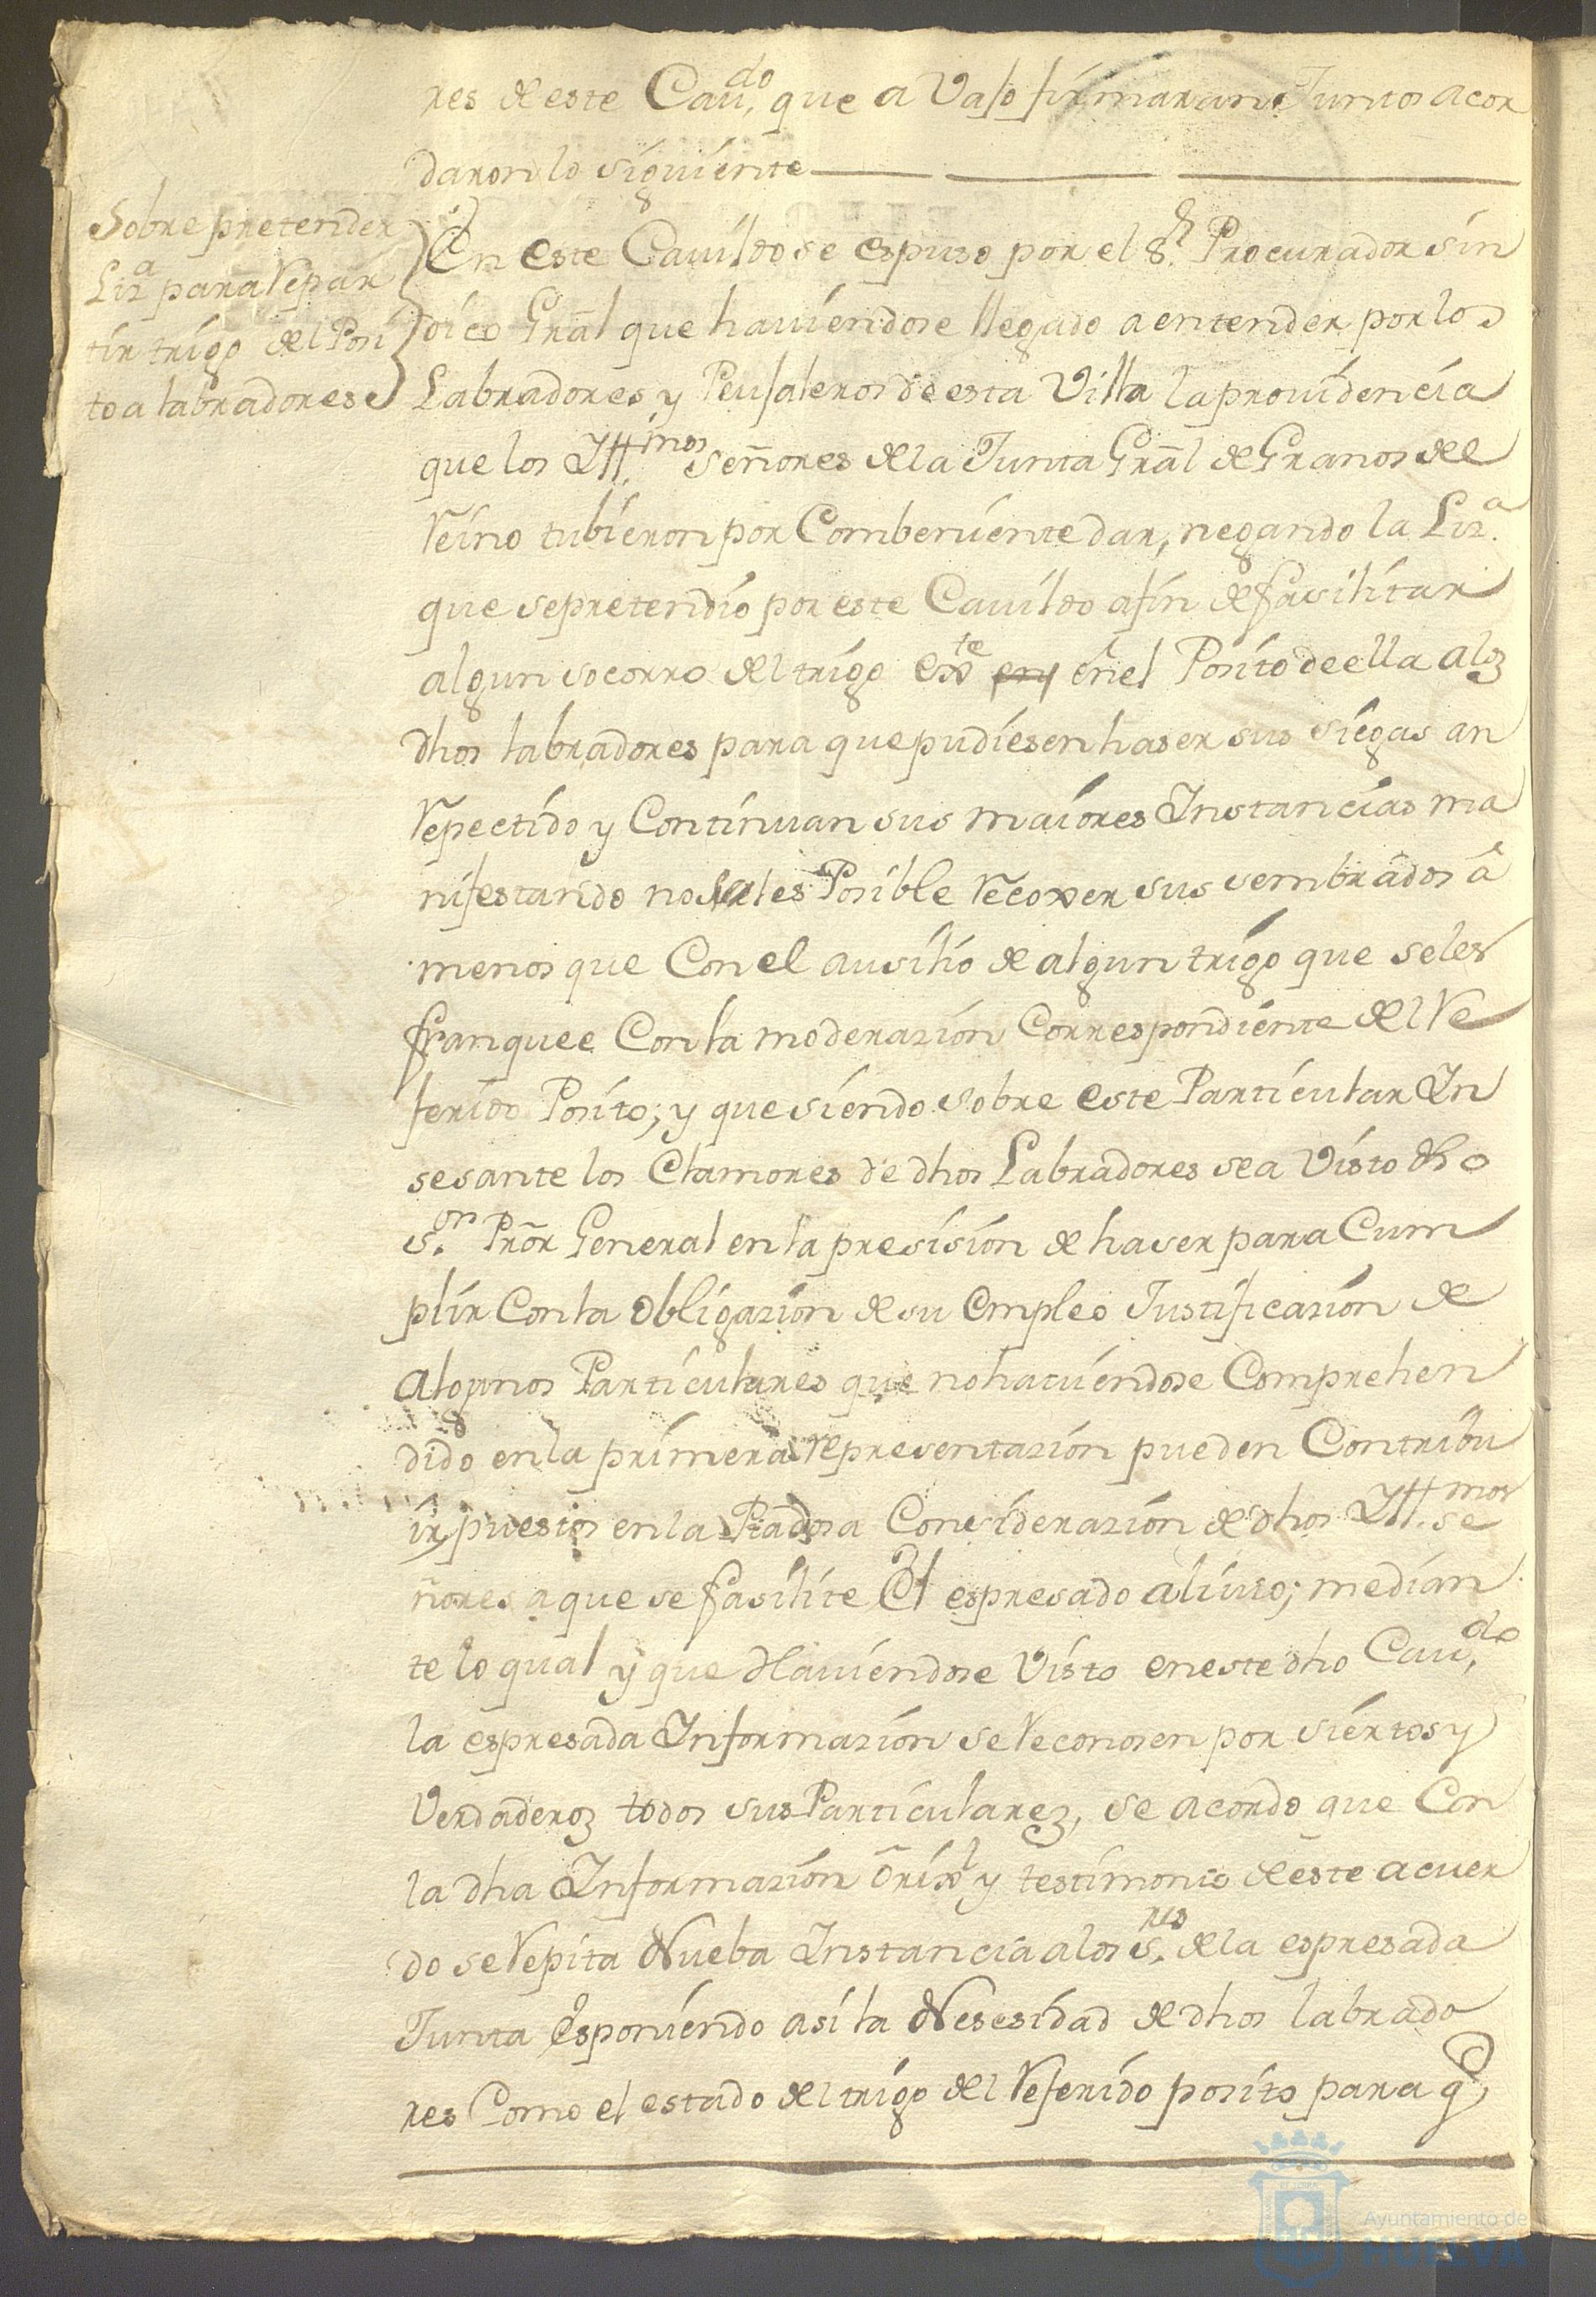 res de este Cavdo, que a Vajo firmaran Juntos acor
daron lo siguiente
Sobre pretender
Liza para Repar
tir trigo del Posi
to a labradores
En este Cavildo se espuso por el Sr. Procurador sin
dico Gral que haviendose llegado a entender por los
Labradores y Peujaleros de esta Villa la providencia
que los Illmos Señores de la Junta Gral de Granos del
Reino tubieron por Combeniente dar, negando la Liza.
que se pretendio por este Cavildo a fin de fasilitar
algun socorro del trigo exte en el Posito de ella a los
dhos labradores para que pudiesen haser sus siegas an
Repectido y Continuan sus maiores Instancias ma
nifestando no serles Posible Recoxer sus sembrados â
menos que Con el ausilio de algun trigo que se les
franquee Con la moderazion Correspondiente del Re
ferido Posito; y que siendo sobre este Particular In
sesante los Clamores de dhos Labradores se a Visto dho
Son. Pror General en la presision de haser para Cum
plir Con la obligazion de su Empleo Justificazion de
algunos Particulares que no haviendose Comprehen
dido en la primera representazion pueden Contribu
ir puestos en la Piadosa Considerazion de dhos Illmos. se
ñores a que se fasilite El espresado alivio; median
te lo qual y que Haviendose Visto en este dho Cavdo,
la espresada Informazion se Reconosen por siertos y
Verdaderos todos sus Particulares, se acordo que Con
la dha Informazion orixl y testimonio de este acuer
do se Repita Nueba Instancia a los Sres. de la espresada
Junta Esponiendo asi la Nesesidad de dhos labrado
res Como el estado del trigo del Referido posito para q
Ayuntamiento de
HUELVA